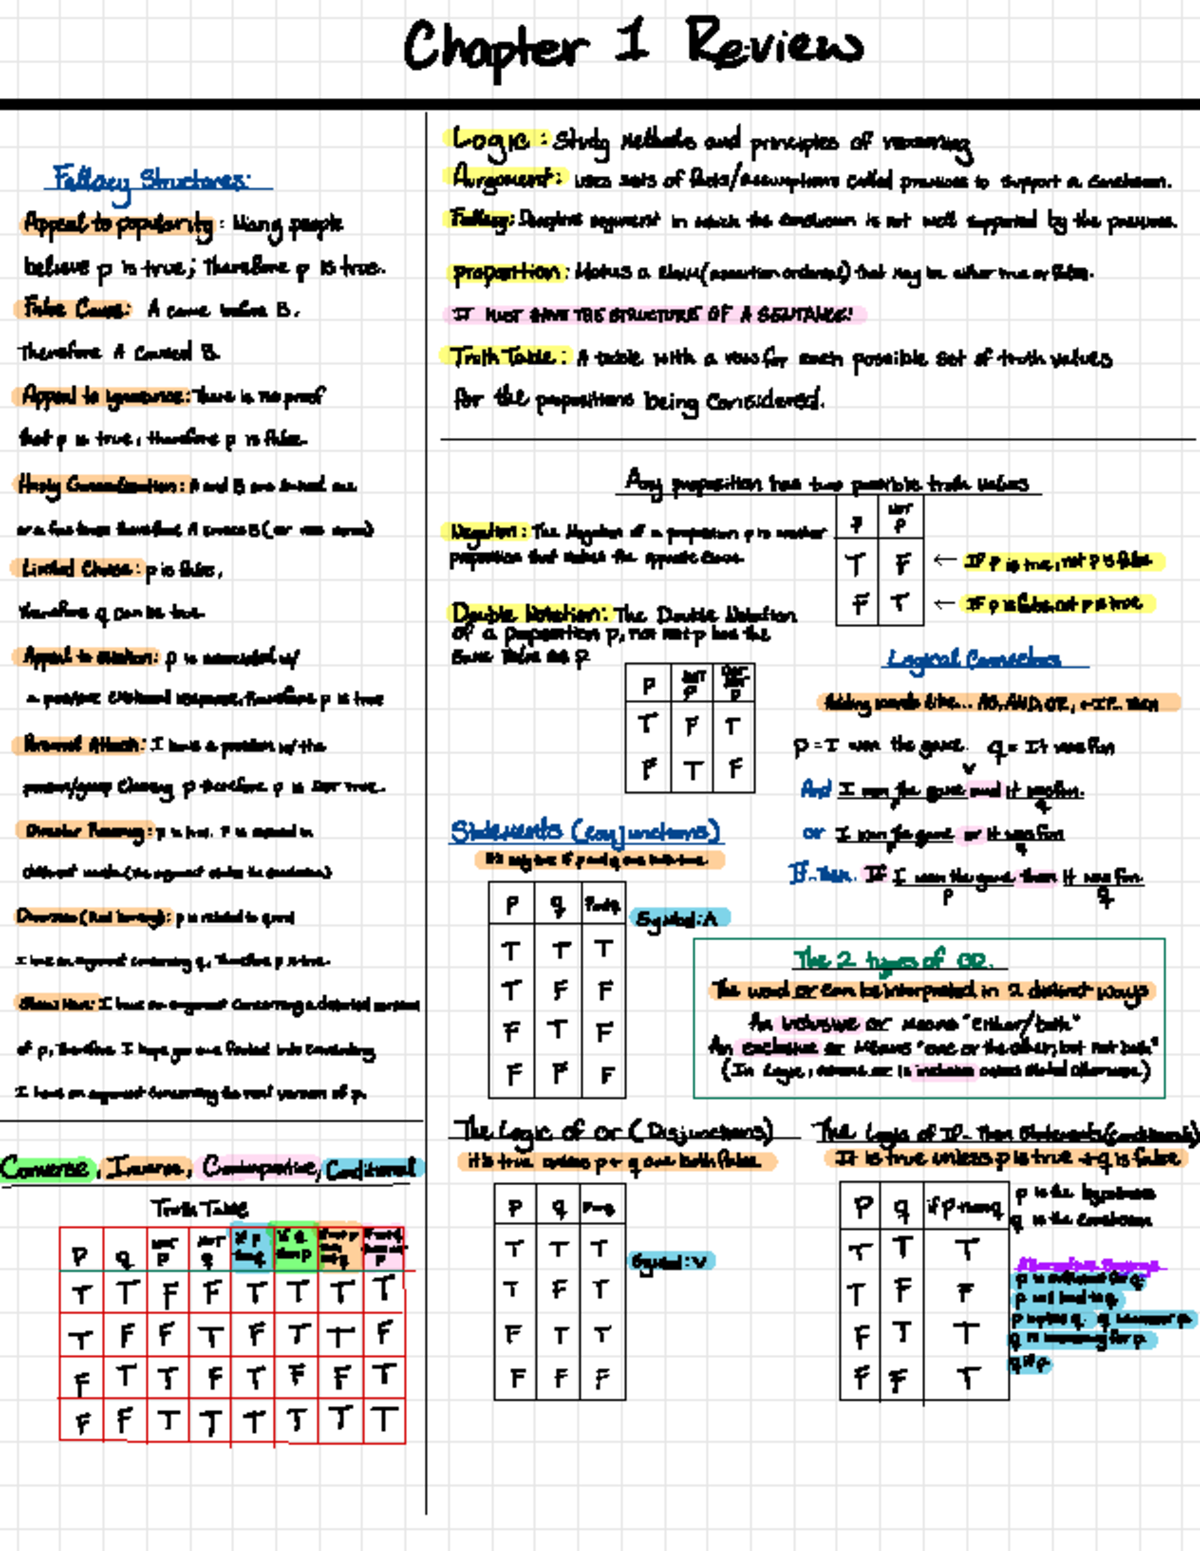 Chapter 1 Review
Fallacy Structures:
Appeal to popularity: Many people
believe p is true; Therefore p is true.
False Cause: A came before B.
Therefore A caused B.
Appeal to Ignorance: There is no proof
that p is true, therefore p is false.
Hasty Generalization: A and B are linked one
or a few times therefore A causes B (or vice versa)
Limited Choice: p is false,
therefore q can be true.
Appeal to emotion: p is associated w/
a positive emotional response, therefore p is true
Personal Attack: I have a problem w/ the
person/group claiming p therefore p is NOT true.
Circular Reasoning: p is true. P is
different words (the argument states the conclusion)
Diversion (Red herring): p is related to q and
I have an argument concerning q, Therefore p is true.
Straw Man: I have an argument concerning a distorted version
of p, Therefore I hope you are fooled into concluding
I have an argument concerning the real version of p.
Converse, Inverse, Contrapositive, Conditional
Truth Table
p q NOT p NOT q if p then q if q then p
T T F F T T T T
T F F T F T T F
F T T F T F F T
F F T T T T T T
Logic: Study Methods and principles of reasoning
Argument: uses sets of facts/assumptions called premises to support a conclusion.
Fallacy: Deceptive argument in which the conclusion is not well supported by the premises.
proposition: Makes a claim (assertion or denial) that may be either true or false.
IT MUST HAVE THE STRUCTURE OF A SENTENCE!
Truth Table: A table with a row for each possible set of truth values
for the propositions being considered.
Any proposition has two possible truth values
Negation: The Negation of a proposition p is another
proposition that makes the opposite claim.
p NOT p
T F ← If p is true, not p is false
F T ← If p is false, not p is true
Double Notation: The Double Notation
of a proposition p, not not p has the
same value as p
p NOT p NOT NOT p
T F T
F T F
Logical Connectors
Adding words like... AS, AND, OR, + IF... then
p = I won the game. q = It was fun
And I won the game and it was fun.
p q
or I won the game or it was fun
p q
If..then. If I won the game then it was fun.
p q
Statements (conjunctions)
It's only true if p and q are both true.
p q P and q
T T T
T F F
F T F
F F F
Symbol: ∧
The 2 types of OR.
The word or can be interpreted in 2 distinct ways
An inclusive or means "either/both"
An exclusive or means "one or the other, but not both"
(In logic, assume or is inclusive unless stated otherwise)
The Logic of or (Disjunctions)
it's true unless p + q are both false
p q P or q
T T T
T F T
F T T
F F F
Symbol: ∨
The Logic of IF.. Then Statements (conditionals)
It is true unless p is true + q is false
P q if p then q
T T T
T F F
F T T
F F T
p is the hypothesis
q is the conclusion
p is sufficient for q.
p will lead to q.
p implies q.
q is necessary for p.
q if p